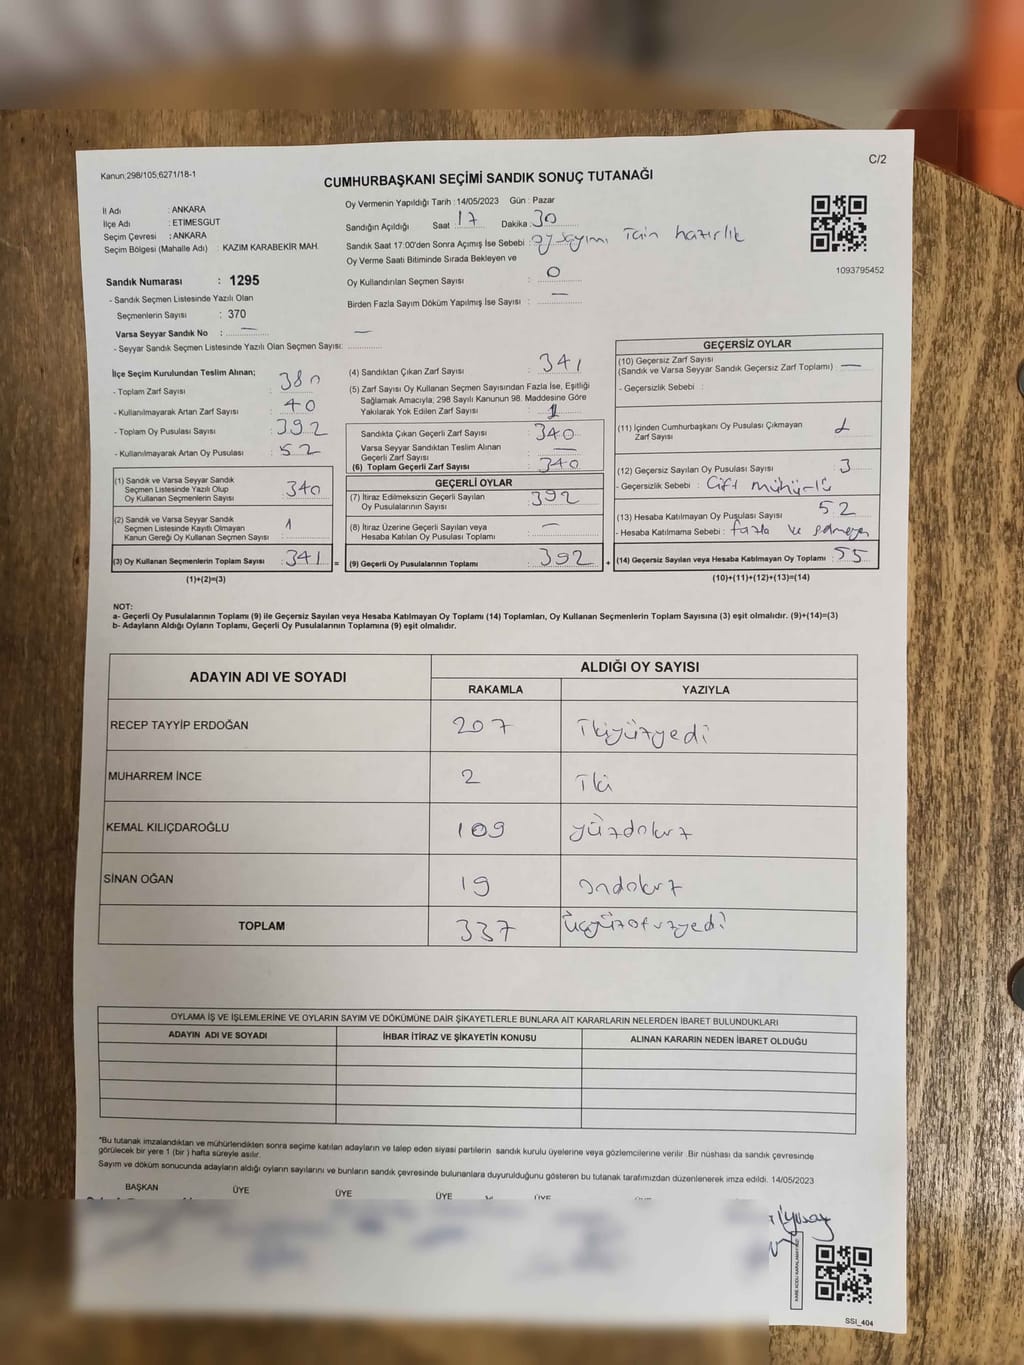 C/2
Kanun;298/105;6271/18-1
CUMHURBAŞKANI SEÇİMİ SANDIK SONUÇ TUTANAĞI
İl Adı : ANKARA
İlçe Adı : ETİMESGUT
Seçim Çevresi : ANKARA
Seçim Bölgesi (Mahalle Adı) : KAZIM KARABEKİR MAH.
Oy Vermenin Yapıldığı Tarih :14/05/2023 Gün : Pazar
Sandığın Açıldığı Saat 17 Dakika : 30
Sandık Saat 17:00'den Sonra Açımış İse Sebebi : oy sayımı için hazırlık
Oy Verme Saati Bitiminde Sırada Bekleyen ve
Oy Kullandırılan Seçmen Sayısı : 0
Birden Fazla Sayım Döküm Yapılmış İse Sayısı : —
1093795452
Sandık Numarası : 1295
- Sandık Seçmen Listesinde Yazılı Olan
Seçmenlerin Sayısı : 370
Varsa Seyyar Sandık No : —
- Seyyar Sandık Seçmen Listesinde Yazılı Olan Seçmen Sayısı: —
İlçe Seçim Kurulundan Teslim Alınan;
- Toplam Zarf Sayısı : 380
- Kullanılmayarak Artan Zarf Sayısı : 40
- Toplam Oy Pusulası Sayısı : 392
- Kullanılmayarak Artan Oy Pusulası : 52
(1) Sandık ve Varsa Seyyar Sandık
Seçmen Listesinde Yazılı Olup
Oy Kullanan Seçmenlerin Sayısı : 340
(2) Sandık ve Varsa Seyyar Sandık
Seçmen Listesinde Kayıtlı Olmayan
Kanun Gereği Oy Kullanan Seçmen Sayısı : 1
(3) Oy Kullanan Seçmenlerin Toplam Sayısı : 341 =
(1)+(2)=(3)
(4) Sandıktan Çıkan Zarf Sayısı : 341
(5) Zarf Sayısı Oy Kullanan Seçmen Sayısından Fazla İse, Eşitliği
Sağlamak Amacıyla; 298 Sayılı Kanunun 98. Maddesine Göre
Yakılarak Yok Edilen Zarf Sayısı : 1
Sandıkta Çıkan Geçerli Zarf Sayısı : 340
Varsa Seyyar Sandıktan Teslim Alınan
Geçerli Zarf Sayısı : —
(6) Toplam Geçerli Zarf Sayısı : 340
GEÇERLİ OYLAR
(7) İtiraz Edilmeksizin Geçerli Sayılan
Oy Pusulalarının Sayısı : 392
(8) İtiraz Üzerine Geçerli Sayılan veya
Hesaba Katılan Oy Pusulası Toplamı : —
(9) Geçerli Oy Pusulalarının Toplamı : 392 +
GEÇERSİZ OYLAR
(10) Geçersiz Zarf Sayısı
(Sandık ve Varsa Seyyar Sandık Geçersiz Zarf Toplamı) : —
- Geçersizlik Sebebi :
(11) İçinden Cumhurbaşkanı Oy Pusulası Çıkmayan
Zarf Sayısı :
(12) Geçersiz Sayılan Oy Pusulası Sayısı : 3
- Geçersizlik Sebebi : Çift mühürlü
(13) Hesaba Katılmayan Oy Pusulası Sayısı : 52
- Hesaba Katılmama Sebebi : fazla ve
(14) Geçersiz Sayılan veya Hesaba Katılmayan Oy Toplamı : 55
(10)+(11)+(12)+(13)=(14)
NOT:
a- Geçerli Oy Pusulalarının Toplamı (9) ile Geçersiz Sayılan veya Hesaba Katılmayan Oy Toplamı (14) Toplamları, Oy Kullanan Seçmenlerin Toplam Sayısına (3) eşit olmalıdır. (9)+(14)=(3)
b- Adayların Aldığı Oyların Toplamı, Geçerli Oy Pusulalarının Toplamına (9) eşit olmalıdır.
ADAYIN ADI VE SOYADI
ALDIĞI OY SAYISI
RAKAMLA YAZIYLA
RECEP TAYYİP ERDOĞAN 207 İkiyüzyedi
MUHARREM İNCE 2 İki
KEMAL KILIÇDAROĞLU 109 yüzdokuz
SİNAN OĞAN 19 ondokuz
TOPLAM 337 üçyüzotuzyedi
OYLAMA İŞ VE İŞLEMLERİNE VE OYLARIN SAYIM VE DÖKÜMÜNE DAİR ŞİKAYETLERLE BUNLARA AİT KARARLARIN NELERDEN İBARET BULUNDUKLARI
ADAYIN ADI VE SOYADI İHBAR İTİRAZ VE ŞİKAYETİN KONUSU ALINAN KARARIN NEDEN İBARET OLDUĞU
*Bu tutanak imzalandıktan ve mühürlendikten sonra seçime katılan adayların ve talep eden siyasi partilerin sandık kurulu üyelerine veya gözlemcilerine verilir. Bir nüshası da sandık çevresinde
görülecek bir yere 1 (bir ) hafta süreyle asılır.
Sayım ve döküm sonucunda adayların aldığı oyların sayılarını ve bunların sandık çevresinde bulunanlara duyurulduğunu gösteren bu tutanak tarafımızdan düzenlenerek imza edildi. 14/05/2023
BAŞKAN ÜYE ÜYE ÜYE ÜYE
SSI_404